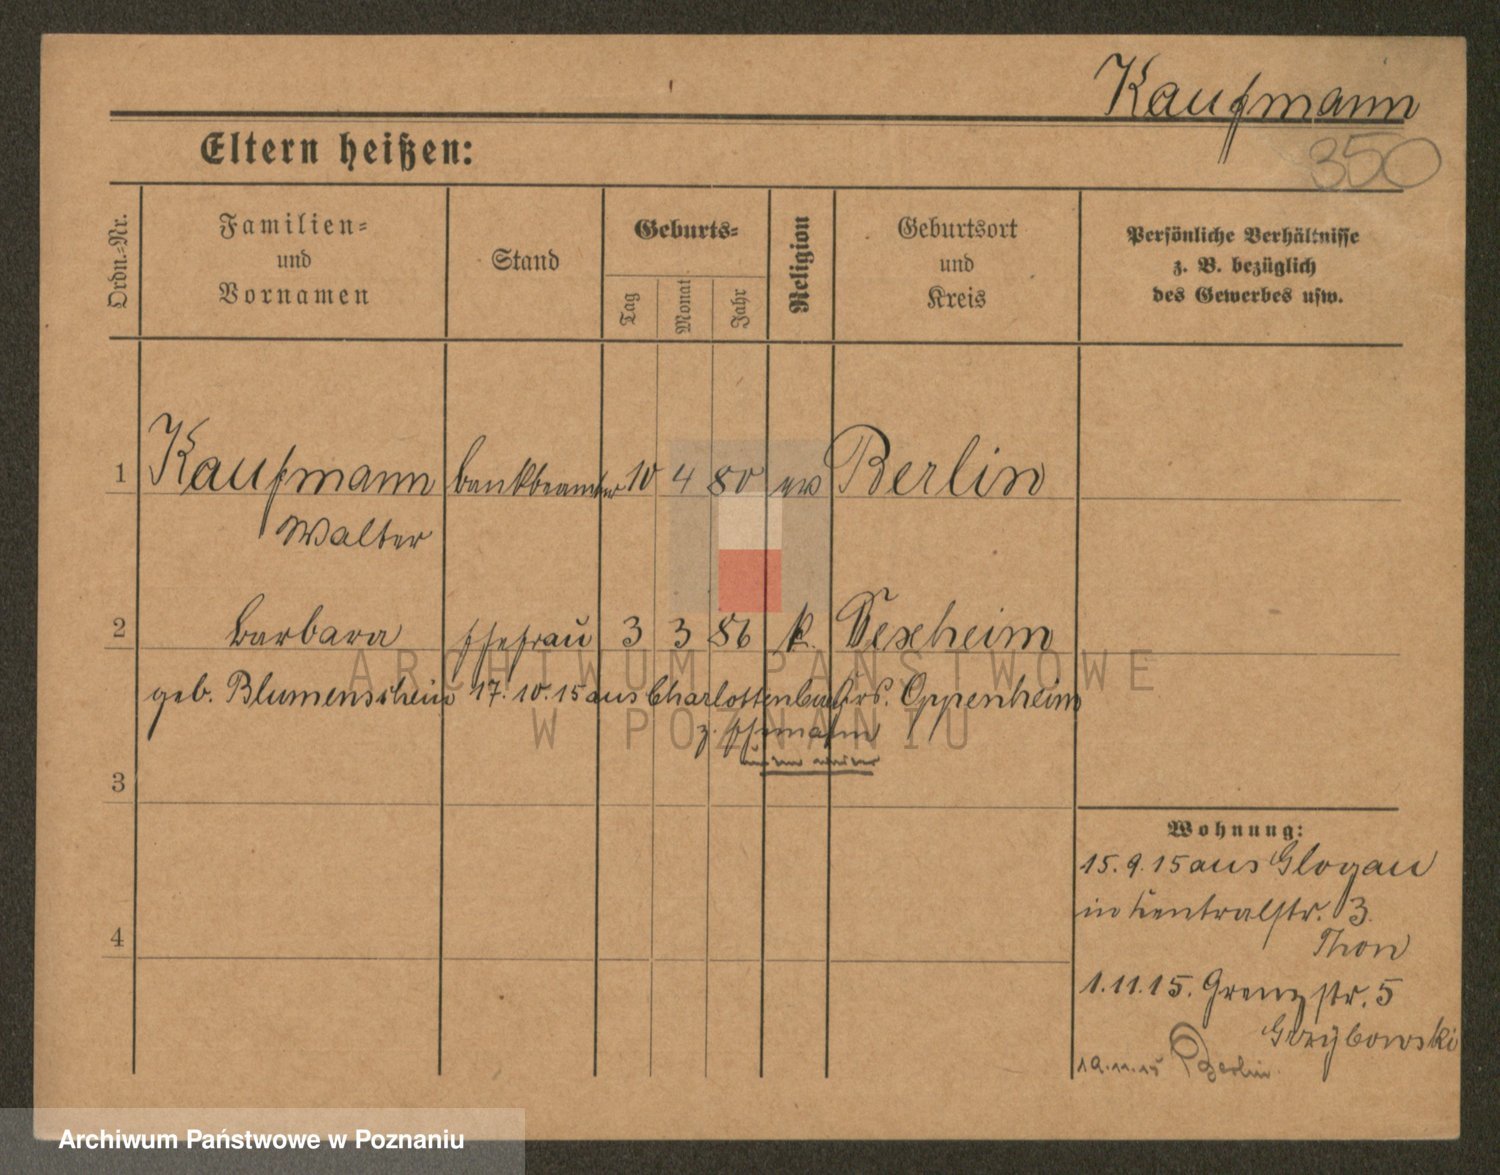 Kaufmann
350
Eltern heißen:
Ordn.-Nr.
Familien-
und
Vornamen
Stand
Geburts-
Tag
Monat
Jahr
Religion
Geburtsort
und
Kreis
Persönliche Verhältnisse
z. B. bezüglich
des Gewerbes usw.
1 Kaufmann Bankbeamter 10 4 80 ev Berlin
Walter
2 Barbara Ehefrau 3 3 86 k. Dexheim
geb. Blumenschein 17.10.15 aus Charlottenburg Krs. Oppenheim
z. Ehemann
3
4
Wohnung:
15.9.15 aus Glogau
in Zentralstr. 3.
Thon
1.11.15. Grenzstr. 5
Grzybowski
19.11.15 Berlin
ARCHIWUM PAŃSTWOWE
W POZNANIU
Archiwum Państwowe w Poznaniu